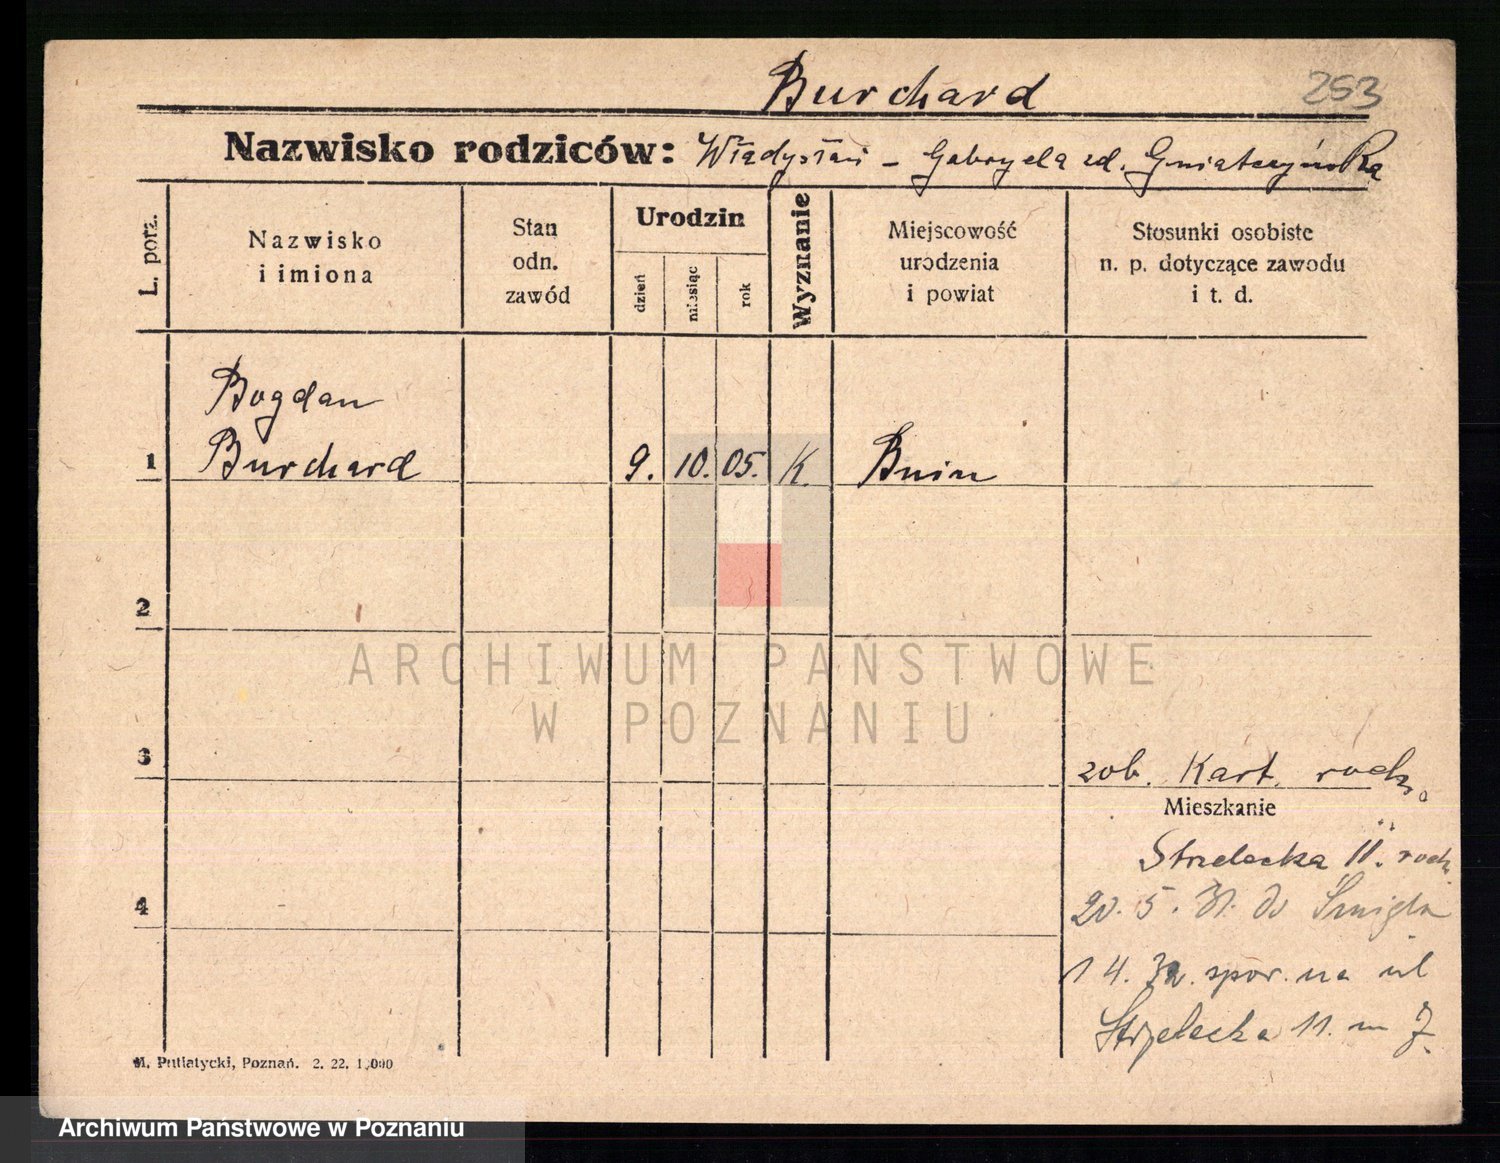 Burchard
253
Nazwisko rodziców: Władysław - Gabryela zd. Gniatczyńska
L. porz.
Nazwisko
i imiona
Stan
odn.
zawód
Urodzin
dzień
miesiąc
rok
Wyznanie
Miejscowość
urodzenia
i powiat
Stosunki osobiste
n. p. dotyczące zawodu
i t. d.
Bogdan
1 Burchard 9. 10. 05. K. Bnin
2
3
zob. Kart. rodz.
Mieszkanie
Strzelecka 11. rodz.
4
20. 5. 31. do Śmigla
1 4. 32. spow. na ul
Strzelecka 11. m 7.
M. Putiatycki, Poznań. 2. 22. 1,000
ARCHIWUM PAŃSTWOWE
W POZNANIU
Archiwum Państwowe w Poznaniu